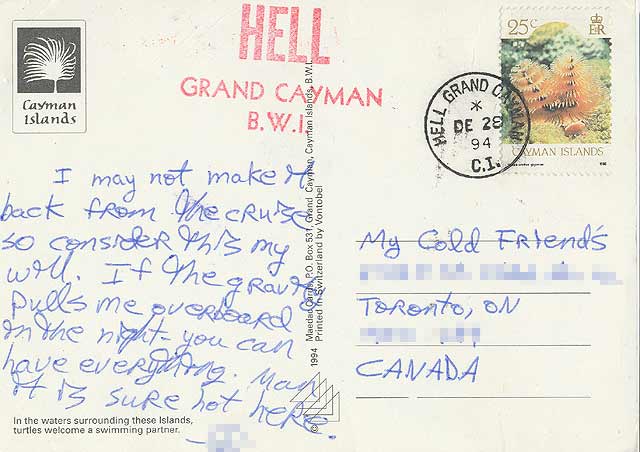 HELL
GRAND CAYMAN
B.W.I.
Cayman
Islands
25c
HELL GRAND CAYMAN
DE 28
94
C.I.
CAYMAN ISLANDS
I may not make it
back from the cruise
so consider this my
will. If the gravity
pulls me overboard
in the night - you can
have everything. Man
it is sure hot here.
In the waters surrounding these Islands,
turtles welcome a swimming partner.
© 1994 Printed in Switzerland by Vontobel
P.O. Box 531, Grand Cayman, Cayman Islands, B.W.I.
My Cold Friend's
Toronto, ON
CANADA